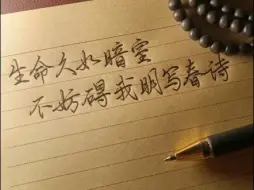 生命久如暗室
不妨碍我明写春诗